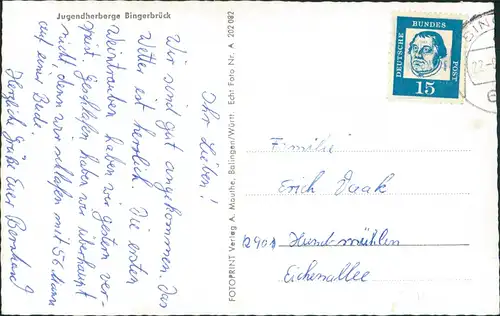 Jugendherberge Bingerbrück
Ihr Lieben!
Wir sind gut angekommen. Das
Wetter ist herrlich. Die ersten
Weintrauben haben wir gestern ver-
speist. Geschlafen haben wir überhaupt
nicht, denn wir schlafen mit 56 Mann
auf einer Bude.
Herzliche Grüße Euer Bernhard
FOTOPRINT Verlag A. Mauthe, Balingen/Württ. Echt Foto Nr. A 202 082
DEUTSCHE BUNDES POST
15
BIN
Familie
Erich
2901 Hundsmühlen
Eichenallee